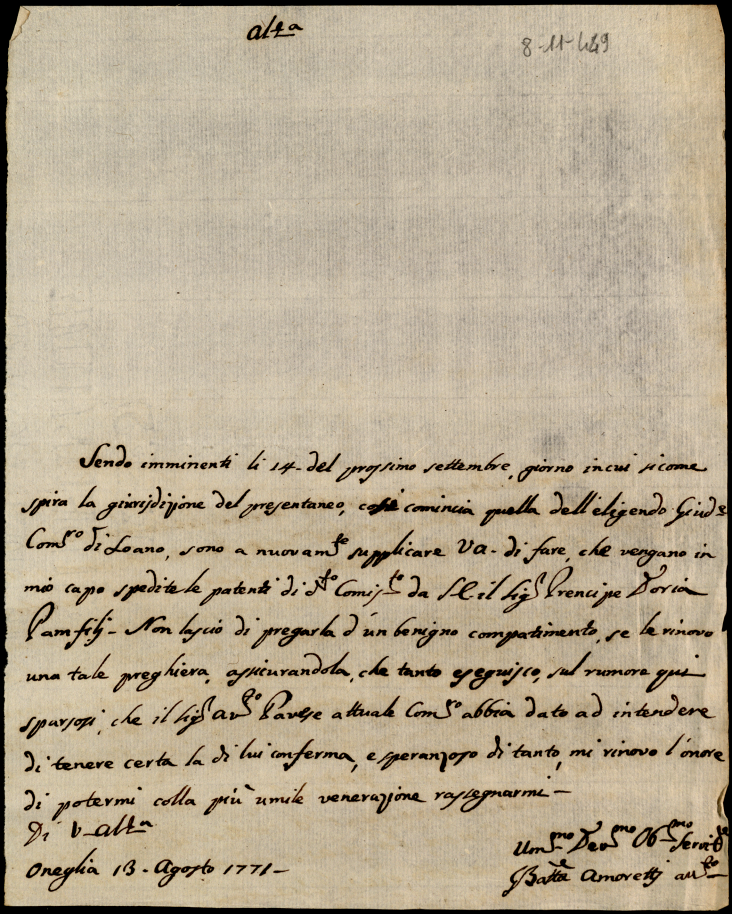 Alt.a
8-11-449
Sendo imminenti li 14- del prossimo settembre, giorno in cui sicome
spira la giurisdizione del presentaneo, così comincia quella dell'eligendo Giud.e
Com.ro di Loano, sono a nuovam.te supplicare VA- di fare, che vengano in
mio capo spedite le patenti di d.to Comis.to da S.E il Sig.r Prencipe Doria
Pamfilj- Non lascio di pregarla d'un benigno compatimento, se le rinovo
una tale preghiera, assicurandola, che tanto eseguisco, sul rumore qui
sparsosi, che il Sig.r av.to Pavese attuale Com.ro abbia dato ad intendere
di tenere certa la di lui conferma, e speranzoso di tanto, mi rinovo l'onore
di potermi colla più umile venerazione rassegnarmi-
Di V-Alt.a
Oneglia 13- Agosto 1771-
Um.mo Dev.mo Ob.mo Servit.e
G Batta Amoretti avv.to-